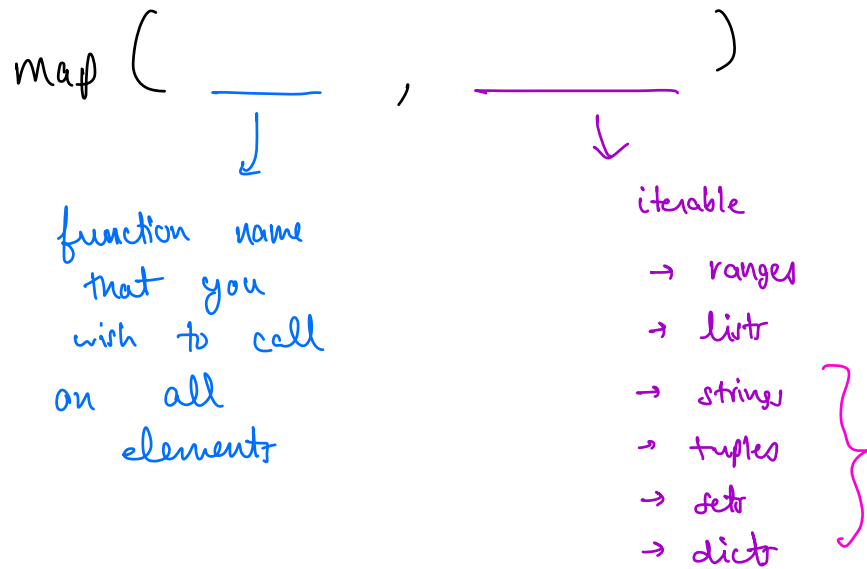 map ( ___ , ___ )
function name
that you
wish to call
on all
elements
iterable
→ ranges
→ lists
→ strings
→ tuples
→ sets
→ dicts